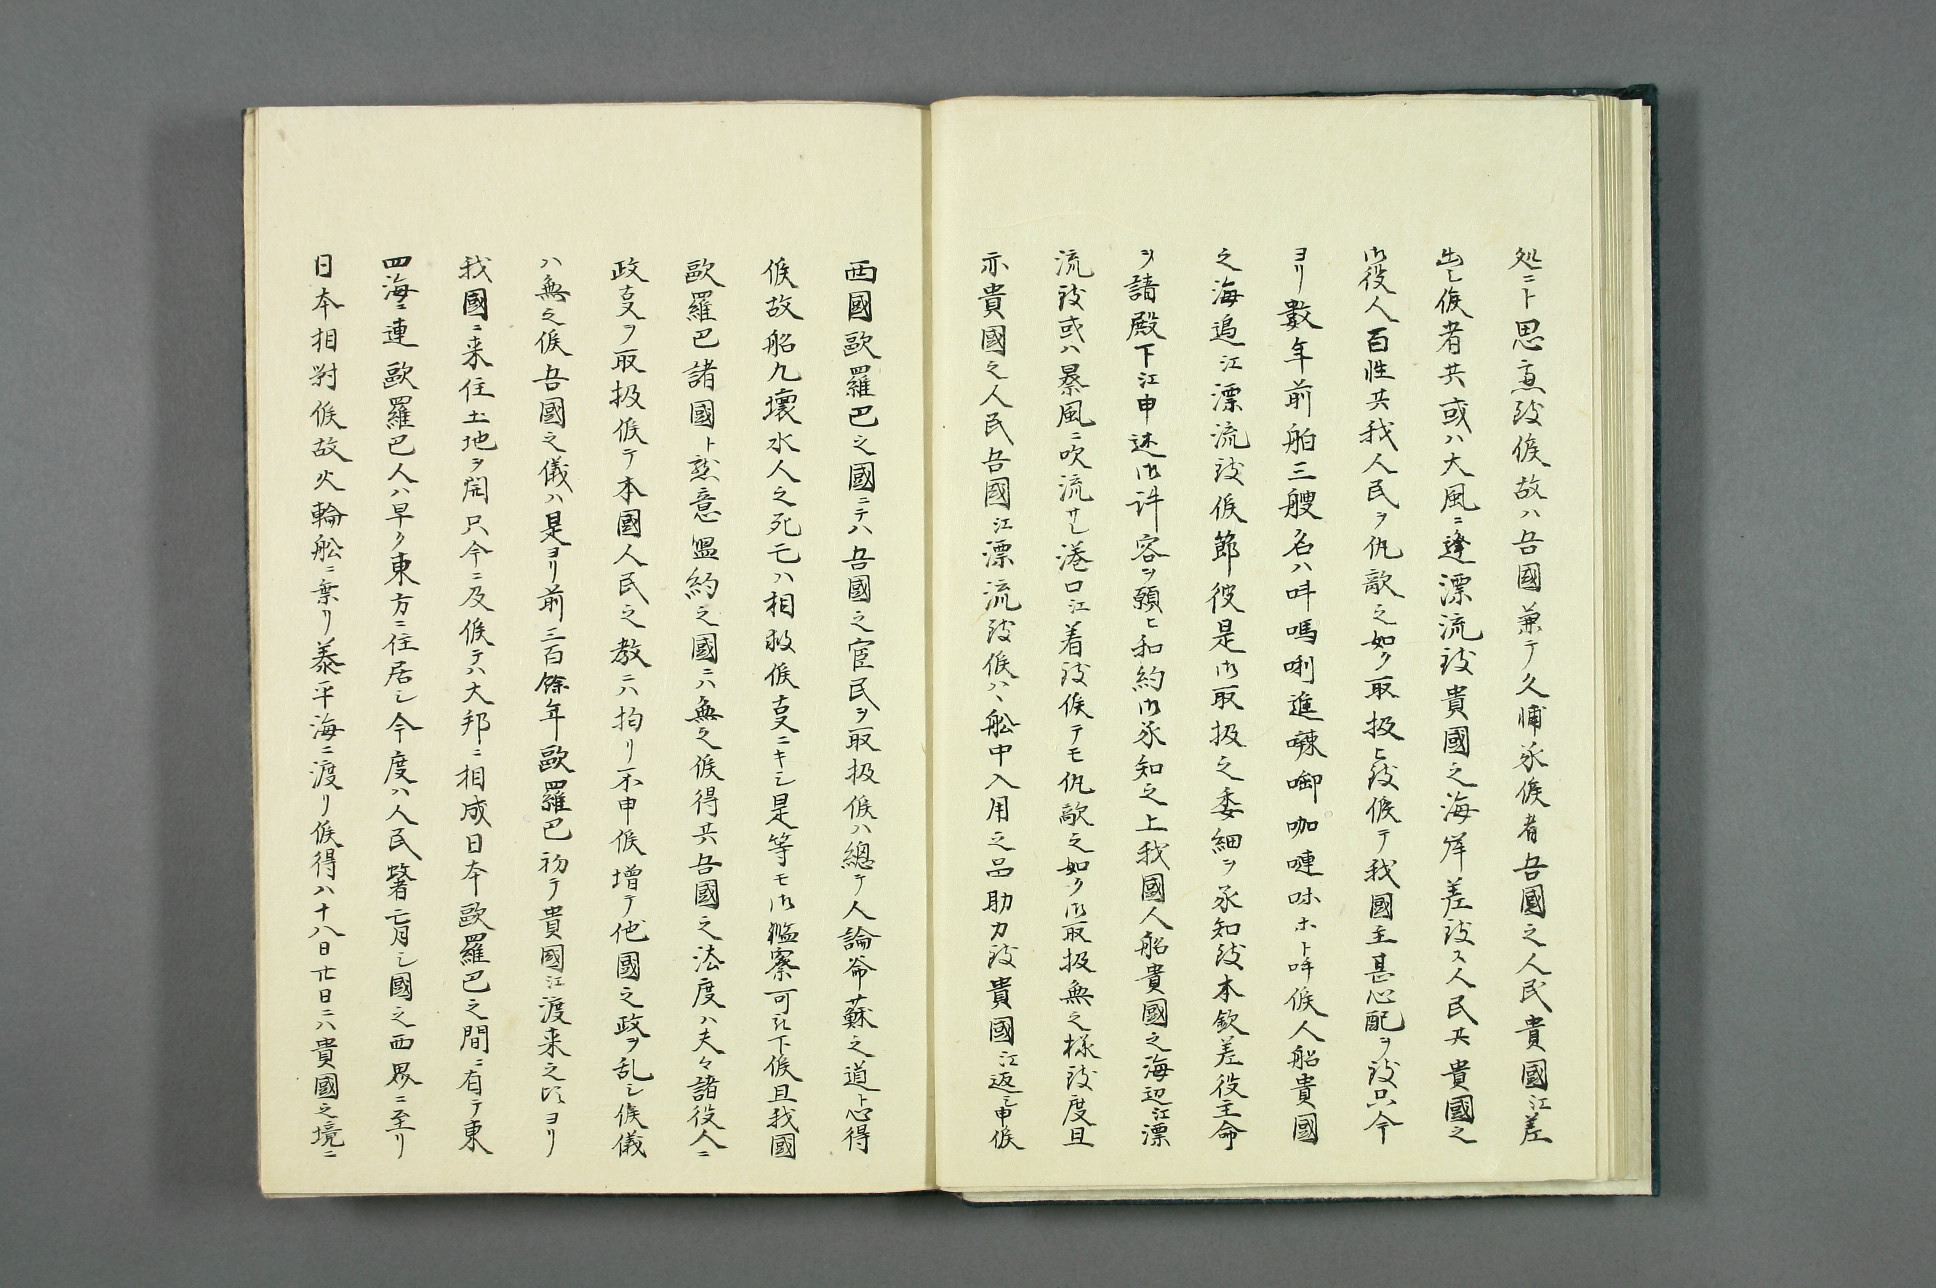 処ニト思慮致候故ハ吾國兼テ久浦承候者吾國之人民貴國江差
出し候者共或ハ大風ニ逢漂流致貴國之海岸差致ス人民共貴國之
御役人百姓共我人民ヲ仇敵之如ク取扱ヒ致候テ我國主甚心配ヲ致只今
ヨリ數年前舶三艘名ハ呌嗎唎進㗫啣咖嗹咮ホト呌候人船貴國
之海嶋江漂流致候節彼是御取扱之委細ヲ承知致本欽差役主命
ヲ請殿下江申述御許容ヲ願ヒ和約御承知之上我國人船貴國之海辺江漂
流致或ハ暴風ニ吹流サレ港口江着致候テモ仇敵之如ク御取扱無之様致度且
亦貴國之人民吾國江漂流致候ハヽ舩中入用之品助力致貴國江返し申候
西國歐羅巴之國ニテハ吾國之宦民ヲ取扱候ハ總テ人論爺蘇之道ト心得
候故船凢壊水人之死亡ハ相救候㕝ニキし是等モ御艦察可被下候且我國
歐羅巴諸國ト懇意盟約之國ニハ無之候得共吾國之法度ハ夫々諸役人ニ
政㕝ヲ取扱候テ本國人民之教ニハ拘リ不申候増テ他國之政ヲ乱し候儀
ハ無之候吾國之儀ハ是ヨリ前三百餘年歐羅巴初テ貴國江渡来之頃ヨリ
我國ニ来住土地ヲ開只今ニ及候テハ大邦ニ相成日本歐羅巴之間ニ有テ東
四海ニ連歐羅巴人ハ早ク東方ニ住居し今度ハ人民蕃育し國之西界ニ至リ
日本相對候故火輪舩ニ乗リ泰平海ニ渡リ候得ハ十八日廿日ニハ貴國之境ニ